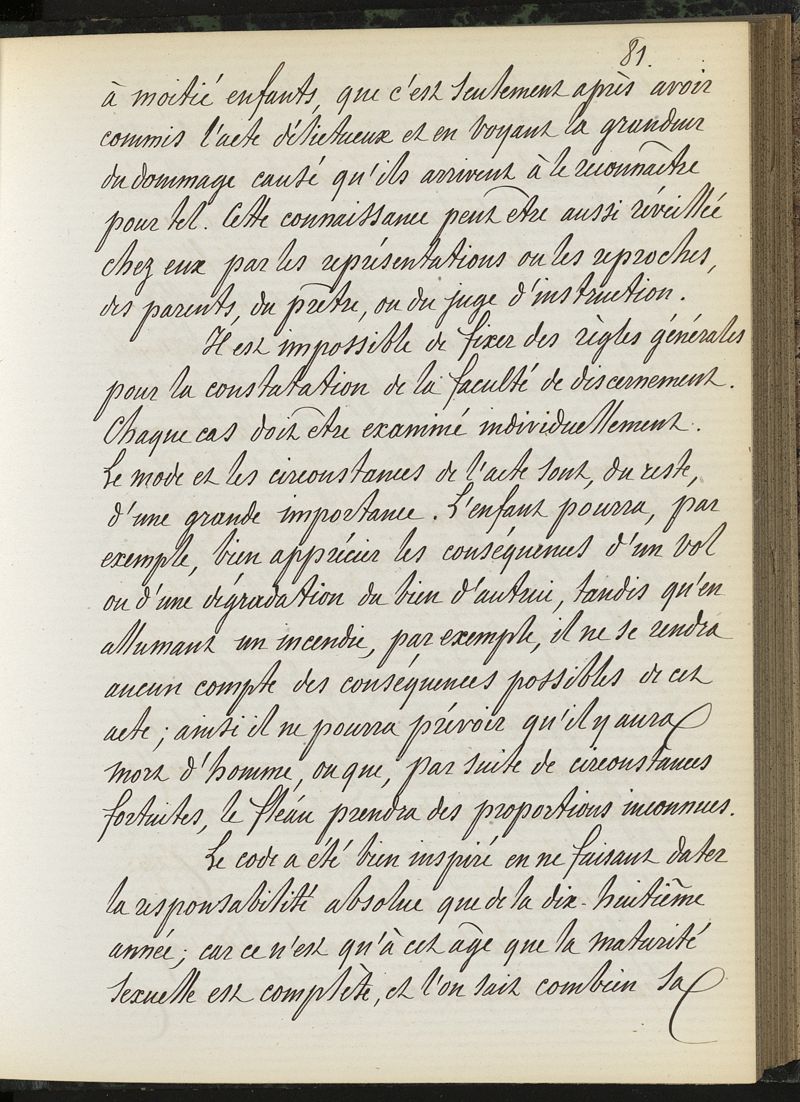 81.
à moitié enfants, que c'est seulement après avoir
commis l'acte délictueux et en voyant la grandeur
du dommage causé qu'ils arrivent à le reconnaître
pour tel. Cette connaissance peut être aussi réveillée
chez eux par les représentations ou les reproches,
des parents, du prêtre, ou du juge d'instruction.
Il est impossible de fixer des règles générales
pour la constatation de la faculté de discernement.
Chaque cas doit être examiné individuellement.
Le mode et les circonstances de l'acte sont, du reste,
d'une grande importance. L'enfant pourra, par
exemple, bien apprécier les conséquences d'un vol
ou d'une dégradation du bien d'autrui, tandis qu'en
allumant un incendie, par exemple, il ne se rendra
aucun compte des conséquences possibles de cet
acte; ainsi il ne pourra prévoir qu'il y aura
mort d'homme, ou que, par suite de circonstances
fortuites, le fléau prendra des proportions inconnues.
Le code a été bien inspiré en ne faisant dater
la responsabilité absolue que de la dix-huitième
année; car ce n'est qu'à cet âge que la maturité
sexuelle est complète, et l'on sait combien sa